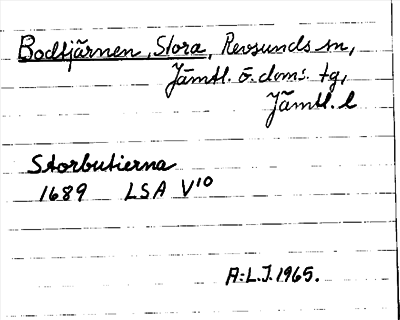 Bodtjärnen, Stora, Revsunds sn,
Jämtl. ö. doms. tg,
Jämtl. l
Storbutierna
1689 LSA V10
A.L.J. 1965.